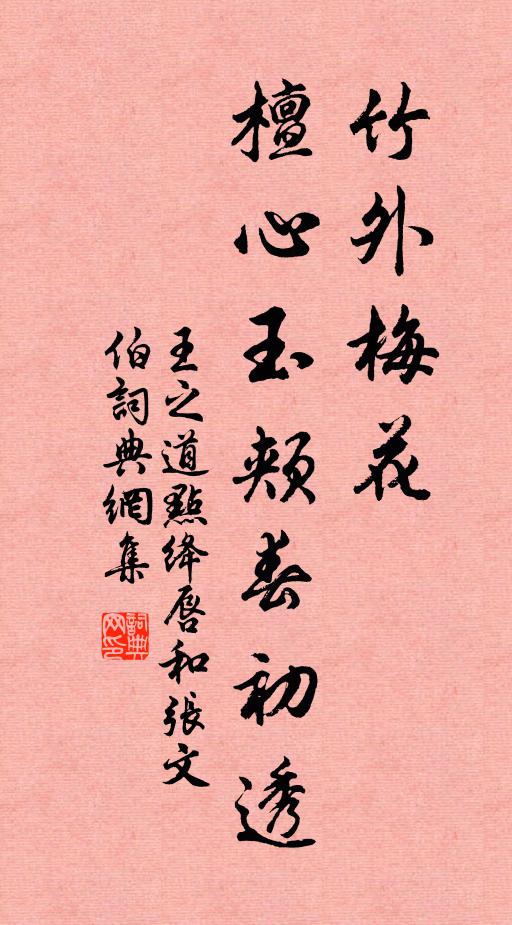 竹外梅花
檀心玉頰春初透
王之道點絳唇和張文
伯詞典網集
詞典
网印